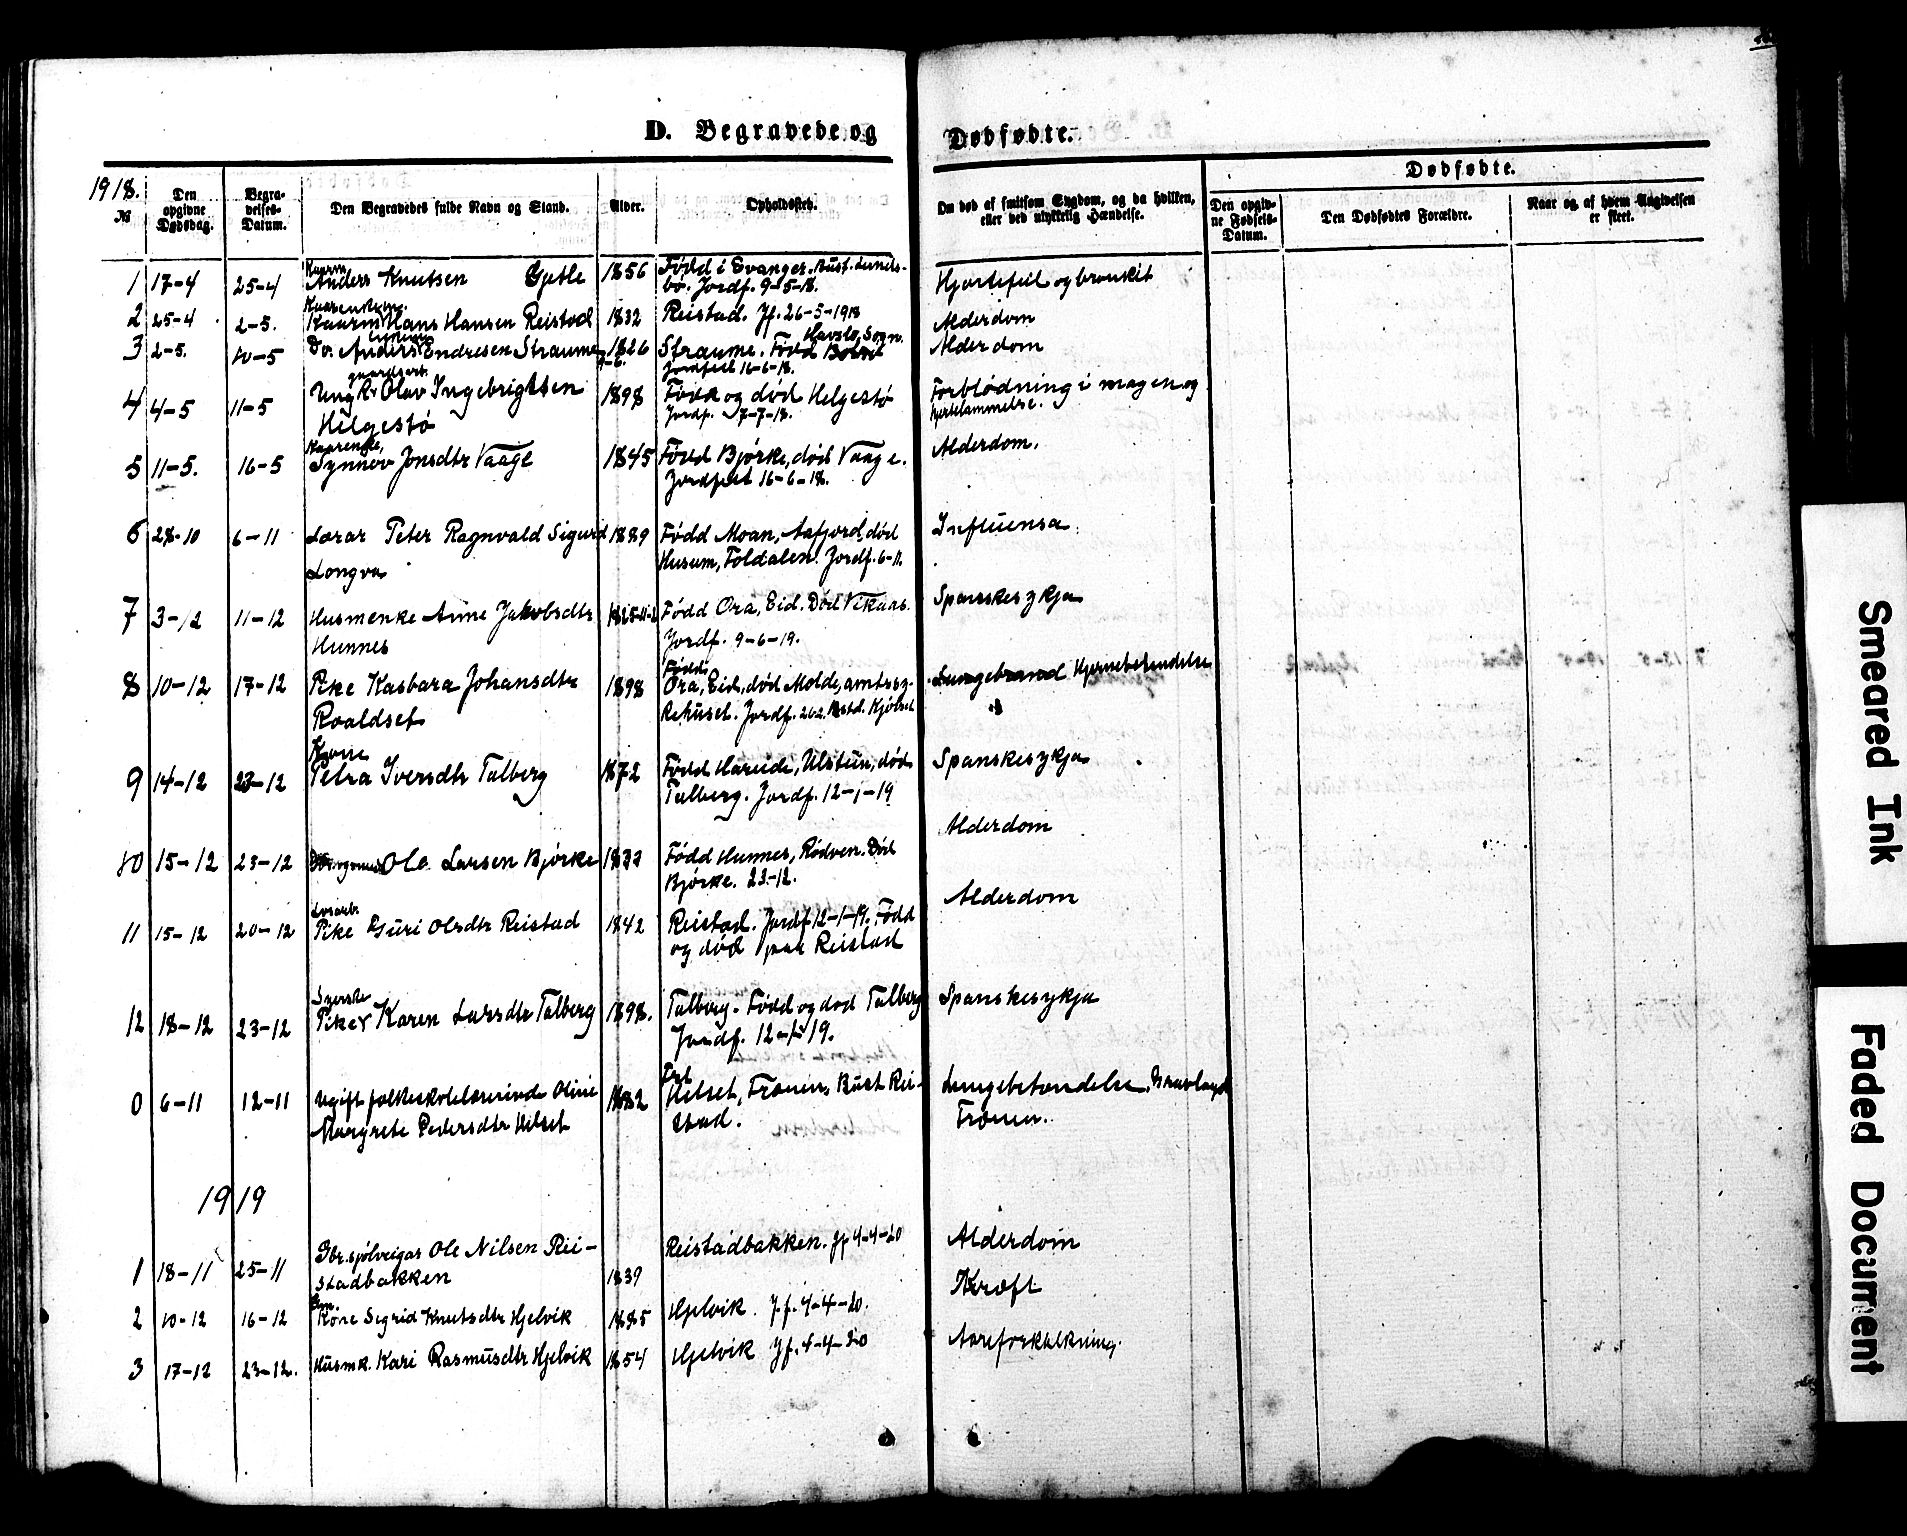 D. Begravede og Dødfødte.
1918.
№
Den opgivne Dødsdag.
Begravelses-Datum.
Den Begravedes fulde Navn og Stand.
Alder.
Opholdssted.
Om død af smitsom Sygdom, og da hvilken, eller ved ulykkelig Hændelse.
Dødfødte.
Den opgivne Fødsels-Datum.
Den Dødfødtes Forældre.
Naar og af hvem Angivelsen er skeet.
1 17-4 25-4 Kaarm Anders Knutsen 1856 Fødd i Evanger. Bust. Lunds-
bø. Jordf. 9-5-18. Hjartefeil og bronkit
2 25-4 2-5. Kaarm Hans Hansen Reistad 1832 Reistad. Jf. 26-5-1918 Alderdom
3 2-5. 10-5 Do. Anders Endresen Straume 1826 Straume. Fødd Havslo, Sogn.
Jordfest 16-6-18. Alderdom
4 4-5 11-5 Ungk. Olav Ingebrigtsen 1898 Fødd og død Helgestø Forblødning i magen og
gaardsarb.
Helgestø Jordf. 7-7-18. hjertelammelse.
5 11-5. 16-5 Kaarenke, Synnøv Jonsdtr Vaage 1845 Fødd Bjørke, død Vaage. Alderdom.
Jordfest 16-6-18.
6 28-10 6-11 Lærar Peter Ragnvald Sigurd 1889 Fødd Moan, Aafjord, død Influensa
Longva Husum, Foldalen. Jordf. 6-11.
7 3-12 11-12 Husmenke Anne Jakobsdtr Fødd Ora, Eid. Død Vikaas. Spanskesykja
Hunnes Jordf. 9-6-19.
8 10-12 17-12 Pike Kasbara Johansdtr 1898 Fødd Ora, Eid, død Molde, amtssy- Lungebrand Hjernebetendelse
Roaldset kehuset. Jordf. 26.2. Bstd. Kjølset
9 14-12 23-12 Kone Petra Iversdtr Talberg 1872 Fødd Hareide, Ulstein, død Spanskesykja
Talberg. Jordf. 12-1-19
10 15-12 23-12 Ole Larsen Bjørke Fødd Hunnes, Rødven. Død Alderdom
Bjørke. 23-12.
11 15-12 20-12 Pike Guri Olsdtr Reistad 1842 Reistad. Jordf 12-1-19. Fødd Alderdom
og død paa Reistad
12 18-12 23-12 Syerske Pike Karen Larsdtr Talberg 1898. Talberg. Fødd og død Talberg Spanskesykja
Jordf. 12-1-19.
0 6-11 12-11 Ugift folkeskolelærerinde Oline 1882 Helset, Trænen, Bust Rei- Lungebetændelse. Gravlagd
Margrete Pedersdtr Helset stad. Trænen.
1919
1 18-11 25-11 Gbr. sjølveigar Ole Nilsen Rei- Reistadbakken. Jf 4-4-20 Alderdom
stadbakken 1839
2 10-12 16-12 Gm. Kone Sigrid Knutsdtr Hjelvik 1885 Hjelvik. Jf. 4-4-20. Kræft
3 17-12 23-12. Husmk. Kari Rasmusdtr Hjelvik 1854 Hjelvik Jf. 4-4-20 Aareforkalkning.
Smeared Ink
Faded Document